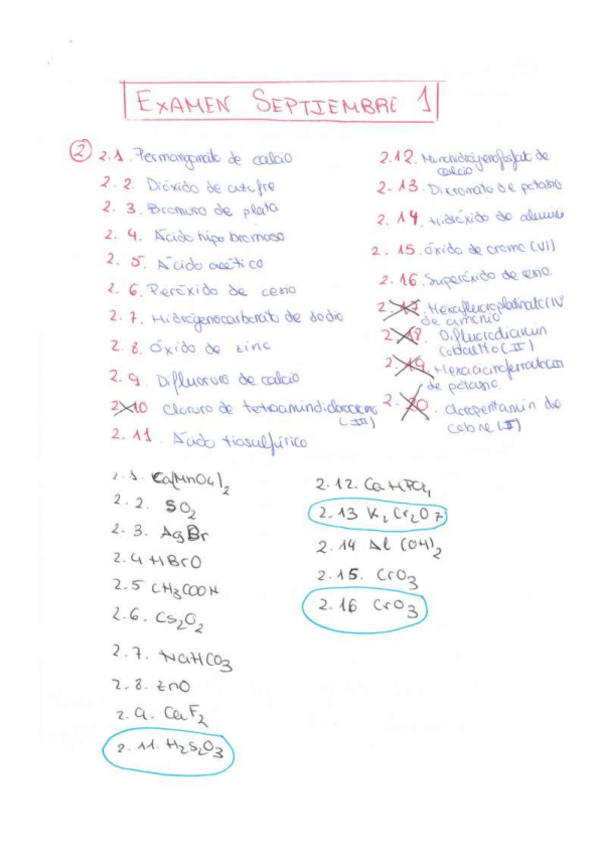 EXAMEN SEPTIEMBRE 1
2 2.1. Permanganato de calcio
2.2. Dióxido de azufre
2.3. Bromuro de plata
2.4. Ácido hipobromoso
2.5. Ácido acético
2.6. Peróxido de cesio
2.7. Hidrogenocarbonato de sodio
2.8. Óxido de zinc
2.9. Difluoruro de calcio
2.10 Cloruro de
(III)
2.11. Ácido tiosulfúrico
2.12. de
calcio
2.13. Dicromato de potasio
2.14. Hidróxido de
2.15. óxido de cromo (VI)
2.16. Superóxido de
2.17. Hexafluoroplatinato (IV
de amonio
2.18.
cobalto (II)
2.19.
de potasio.
2.20.
cobre (II)
2.1. Ca(MnO4)2
2.2. SO2
2.3. AgBr
2.4 HBrO
2.5 CH3COOH
2.6. Cs2O2
2.7. NaHCO3
2.8. ZnO
2.9. CaF2
2.11. H2S2O3
2.12. CaHPO4
2.13 K2Cr2O7
2.14 Al(OH)2
2.15. CrO3
2.16 CrO3